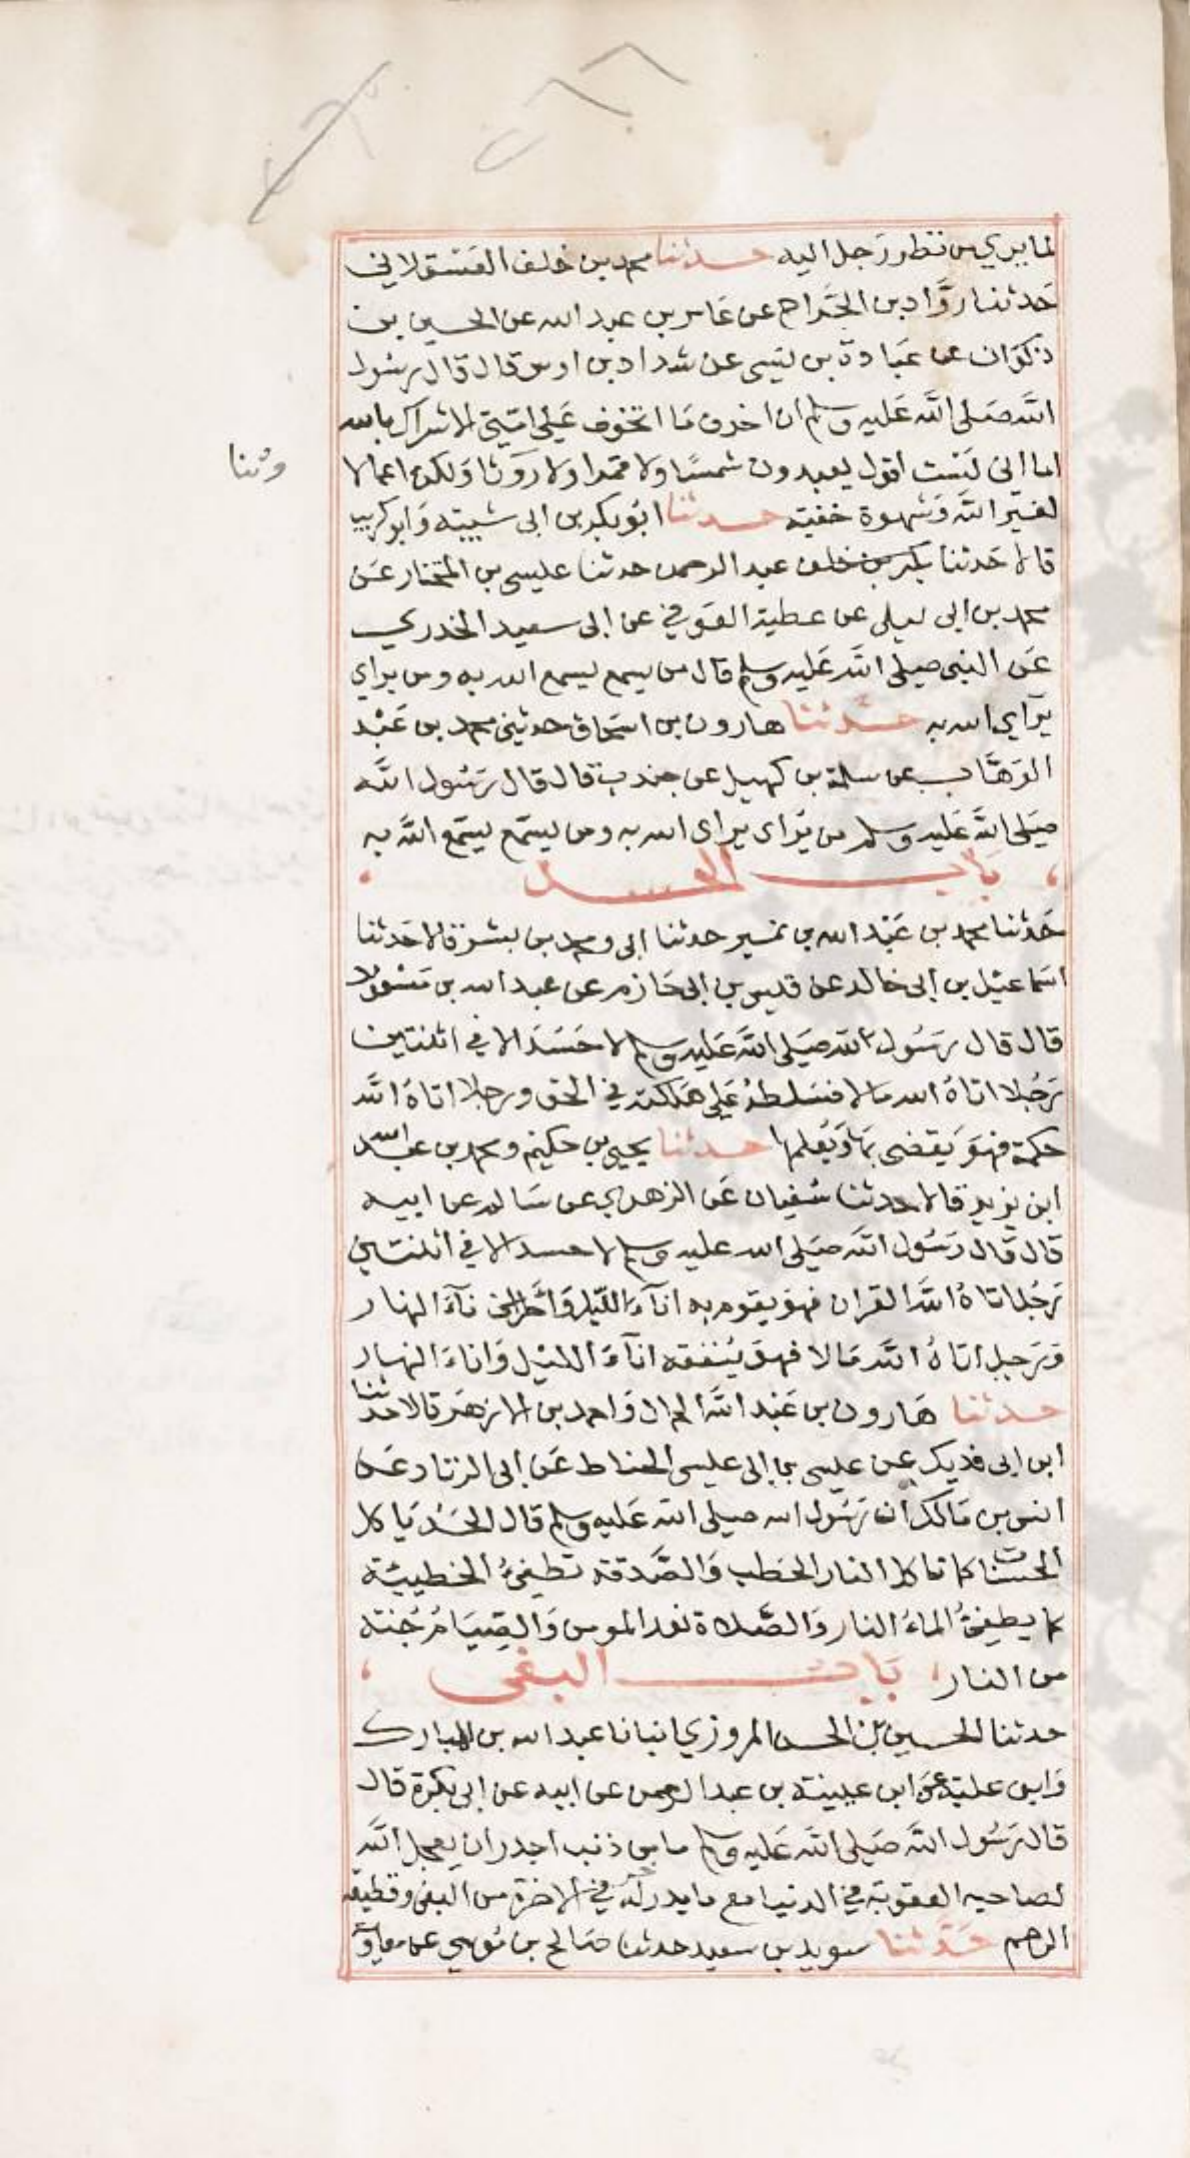 لما يري من نظر رجل اليه حدثنا محمد بن خلف العسقلاني
حدثنا روّاد بن الجراح عن عامر بن عبد الله عن الحسين بن
ذكوان عن عبادة بن نسي عن شداد بن اوس قال قال رسول
الله صلى الله عليه وسلم ان اخوف ما اتخوف على امتي الاشراك بالله
اما اني لست اقول يعبدون شمسًا ولا قمرا ولا روثنا ولكن اعمالا
وثنا
لغير الله وشهوة خفية حدثنا ابو بكر بن ابي شيبة وابو كريب
قالا حدثنا بكر بن خلف عبد الرحمن حدثنا عيسى بن المختار عن
محمد بن ابي ليلى عن عطية العوفي عن ابي سعيد الخدري
عن النبي صلى الله عليه وسلم قال من يسمع يسمع الله به ومن يراي
يرآي الله به حدثنا هارون بن اسحاق حدثني محمد بن عبد
الوهاب عن سلمة بن كهيل عن جندب قال قال رسول الله
صلى الله عليه وسلم من يراى يراى الله به ومن يسمع يسمع الله به
باب الحسد
حدثنا محمد بن عبد الله بن نمير حدثنا ابى ومحمد بن بشر قالا حدثنا
اسماعيل بن ابي خالد عن قيس بن ابي حازم عن عبد الله بن مسعود
قال قال رسول الله صلى الله عليه وسلم لا حسد الا في اثنتين
رجلا اتاهُ الله مالا فسلطه على هلكته في الحق ورجلا اتاهُ الله
حكمة فهو يقضى بها ويعلمها حدثنا يحيى بن حكيم ومحمد بن عبد الله
ابن يزيد قالا حدثنا سفيان عن الزهري عن سالم عن ابيه
قال قال رسول الله صلى الله عليه وسلم لا حسد الا في اثنتين
رجل اتاهُ الله القران فهو يقوم به اناء الليل وآناء النهار
ورجل اتاهُ الله مالا فهو يُنفقه انآء الليل واناء النهار
حدثنا هارون بن عبد الله الحمال واحمد بن الازهر قالا حدثنا
ابن ابي فديك عن عيسى بن ابي عيسى الحناط عن ابي الزناد عن
انس بن مالك ان رسول الله صلى الله عليه وسلم قال الحسد ياكل
الحسنات كما تاكل النار الحطب والصدقة تطفيُ الخطيئة
كما يطفئ الماءُ النار والصلاة نور المومن والصيام جُنة
من النار باب البغى
حدثنا الحسين بن الحسن المروزي انبانا عبد الله بن المبارك
وابن علية عن ابن عيينة بن عبد الرحمن عن ابيه عن ابي بكرة قال
قال رسول الله صلى الله عليه وسلم ما من ذنب اجدر ان يعجل الله
لصاحبه العقوبة في الدنيا مع ما يدخر له في الاخرة من البغي وقطيعة
الرحم حدثنا سويد بن سعيد حدثنا صالح بن موسى عن معاوية